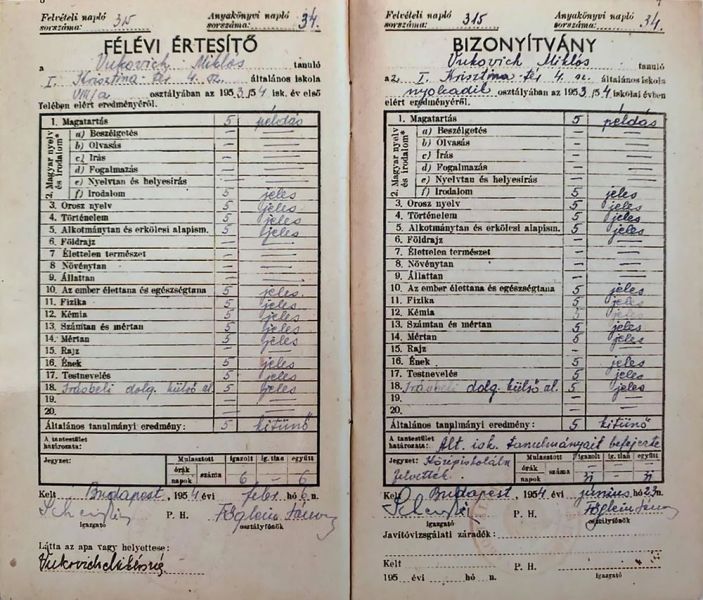 Felvételi napló sorszáma: 315 Anyakönyvi napló sorszáma: 34.
FÉLÉVI ÉRTESÍTŐ
a Vukovich Miklós tanuló
I. Krisztina-tér 4. sz. általános iskola
VIII/a osztályában az 1953/54 isk. év első
felében elért eredményéről.
1. Magatartás 5 példás
2. Magyar nyelv és irodalom*
a) Beszélgetés — —
b) Olvasás — —
c) Írás — —
d) Fogalmazás — —
e) Nyelvtan és helyesírás — —
f) Irodalom 5 jeles
3. Orosz nyelv 5 jeles
4. Történelem 5 jeles
5. Alkotmánytan és erkölcsi alapism. 5 jeles
6. Földrajz — —
7. Élettelen természet — —
8. Növénytan — —
9. Állattan — —
10. Az ember élettana és egészségtana 5 jeles
11. Fizika 5 jeles
12. Kémia 5 jeles
13. Számtan és mértan 5 jeles
14. Mértan 5 jeles
15. Rajz — —
16. Ének 5 jeles
17. Testnevelés 5 jeles
18. Írásbeli dolg. külső al. 5 jeles
19. — —
20. — —
Általános tanulmányi eredmény: 5 kitűnő
A tantestület határozata:
Jegyzet: Mulasztott igazolt ig. tlan együtt
órák száma
napok 6 — 6
Kelt Budapest 1954 évi febr. hó 6 n.
igazgató P. H. osztályfőnök
Látta az apa vagy helyettese:
Vukovich Miklósné
Felvételi napló sorszáma: 315 Anyakönyvi napló sorszáma: 34.
BIZONYÍTVÁNY
Vukovich Miklós tanuló
az I. Krisztina-tér 4. sz. általános iskola
nyolcadik osztályában az 1953/54 iskolai évben
elért eredményéről.
1. Magatartás 5 példás
2. Magyar nyelv és irodalom*
a) Beszélgetés — —
b) Olvasás — —
c) Írás — —
d) Fogalmazás — —
e) Nyelvtan és helyesírás — —
f) Irodalom 5 jeles
3. Orosz nyelv 5 jeles
4. Történelem 5 jeles
5. Alkotmánytan és erkölcsi alapism. 5 jeles
6. Földrajz — —
7. Élettelen természet — —
8. Növénytan — —
9. Állattan — —
10. Az ember élettana és egészségtana 5 jeles
11. Fizika 5 jeles
12. Kémia 5 jeles
13. Számtan és mértan 5 jeles
14. Mértan 5 jeles
15. Rajz — —
16. Ének 5 jeles
17. Testnevelés 5 jeles
18. Írásbeli dolg. külső al. 5 jeles
19. — —
20. — —
Általános tanulmányi eredmény: 5 kitűnő
A tantestület határozata: Ált. isk. tanulmányait befejezte
Jegyzet: Középiskolába felvették. Mulasztott igazolt ig. tlan együtt
órák száma — — —
napok
Kelt Budapest 1954 évi június hó 23 n.
igazgató P. H. osztályfőnök
Javítóvizsgálati záradék:
Kelt
195 évi hó n. P. H. igazgató